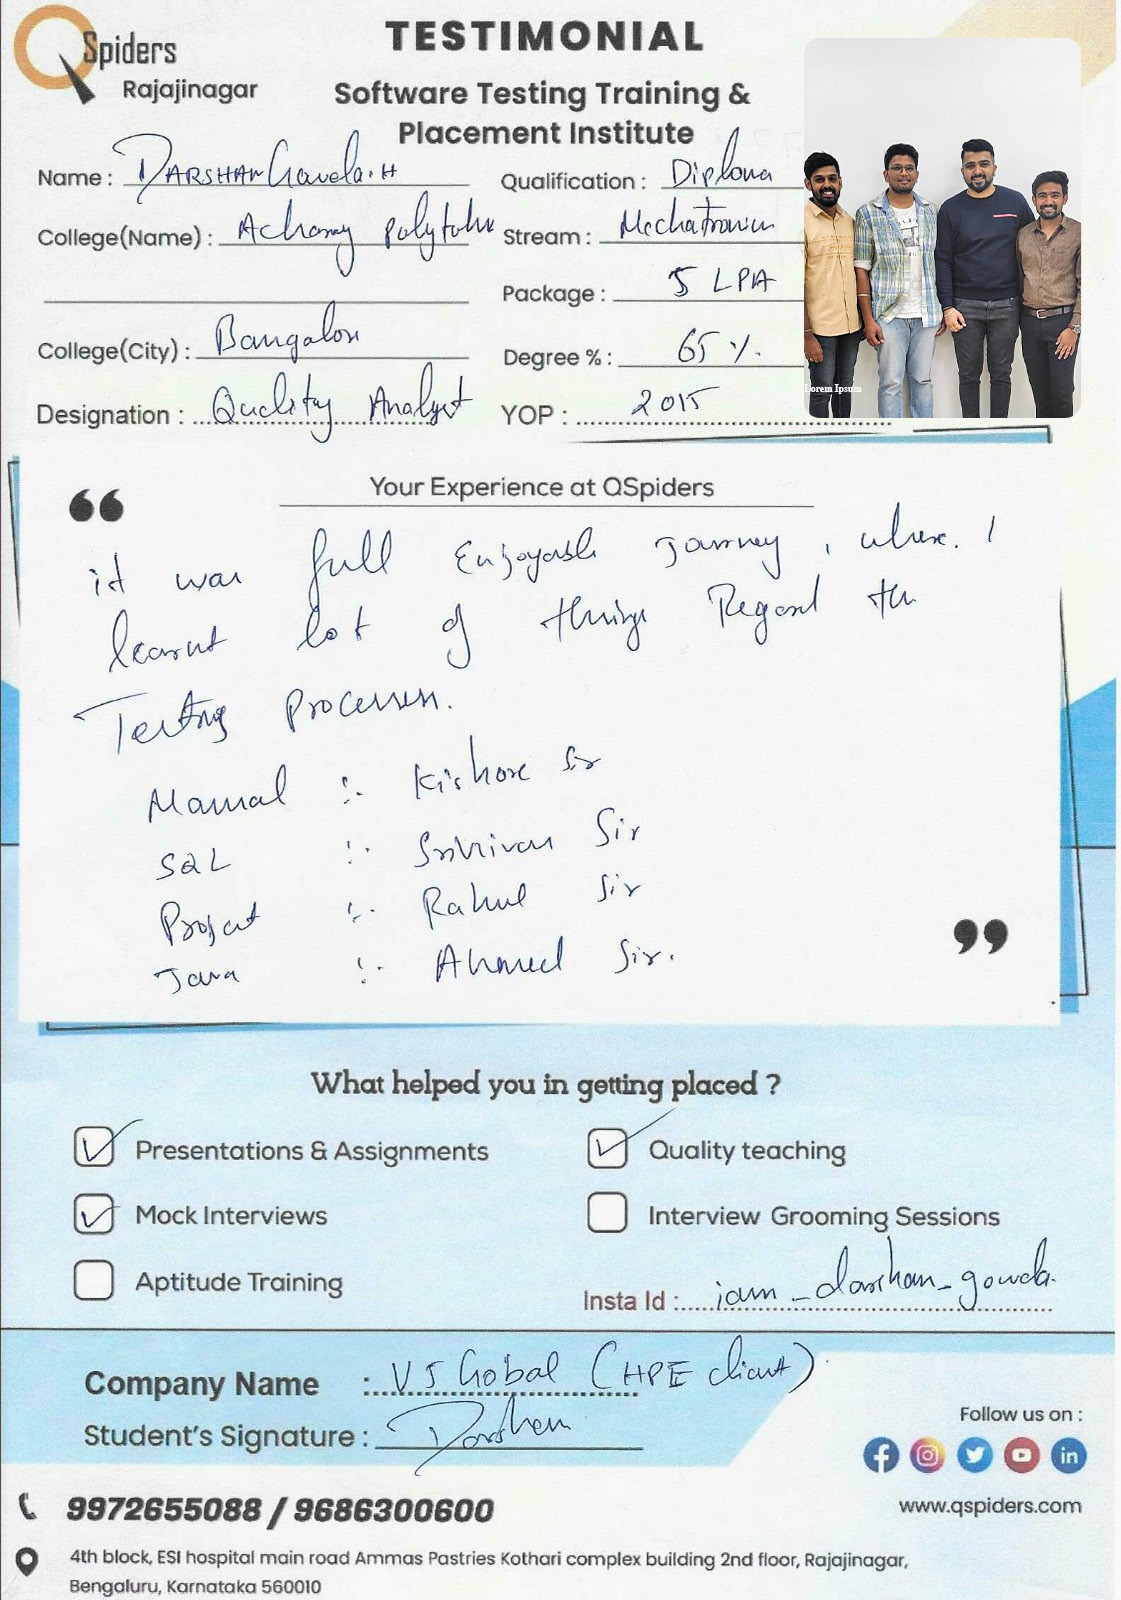 QSpiders
Rajajinagar
TESTIMONIAL
Software Testing Training &
Placement Institute
Name : DARSHAN Gowda.H
Qualification : Diploma
College(Name) :
Stream : Mechatronics
Package : 5 LPA
College(City) : Bangalore
Degree % : 65 %.
Designation : Quality Analyst
YOP : 2015
Lorem Ipsum
Your Experience at QSpiders
“
it was full Enjoyable Journey, where. I
learnt lot of things Regard the
Testing Processes.
Manual :- Kishore Sir
SQL :- Srinivas Sir
Project :- Rahul Sir
Java :- Ahmed Sir.
”
What helped you in getting placed ?
Presentations & Assignments
Quality teaching
Mock Interviews
Interview Grooming Sessions
Aptitude Training
Insta Id : iam_darshan_gowda.
Company Name : Gobal (HPE client)
Student's Signature : Darshan
Follow us on :
9972655088 / 9686300600
www.qspiders.com
4th block, ESI hospital main road Ammas Pastries Kothari complex building 2nd floor, Rajajinagar,
Bengaluru, Karnataka 560010